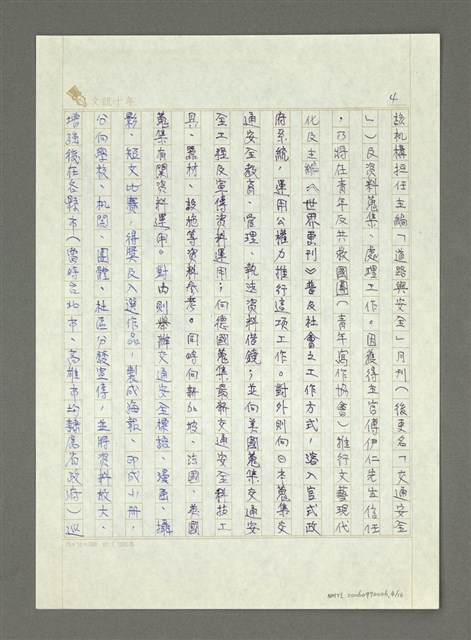 4
文訊十年
該機構担任主編「道路與安全」月刊（後更名「交通安全
」）及資料蒐集、處理工作。因應得主官傅伊仁先生信任
，乃將在青年反共救國團（青年寫作協會）推行文藝現代
化及主編《世界画刊》普及社會之工作方式，溶入官式政
府系統，運用公權力推行這項工作。對外則向日本蒐集交
通安全教育、管理、執法資料借鏡；並向美國蒐集交通安
全工程及宣傳資料運用；向德國蒐集最新交通安全科技工
具、器材、設施等資料參考。同時向新加坡、法國、英國
蒐集有関資料運用。對内則舉辦交通安全標語、漫画、攝
影、短文比賽，得獎及入選作品，製成海報、印成小冊，
分向學校、机関、團體、社區分發宣傳，並將資料放大、
增強後在各縣市（當時台北市、高雄市均隸屬省政府）巡
NMTL 20060990006, 4/16